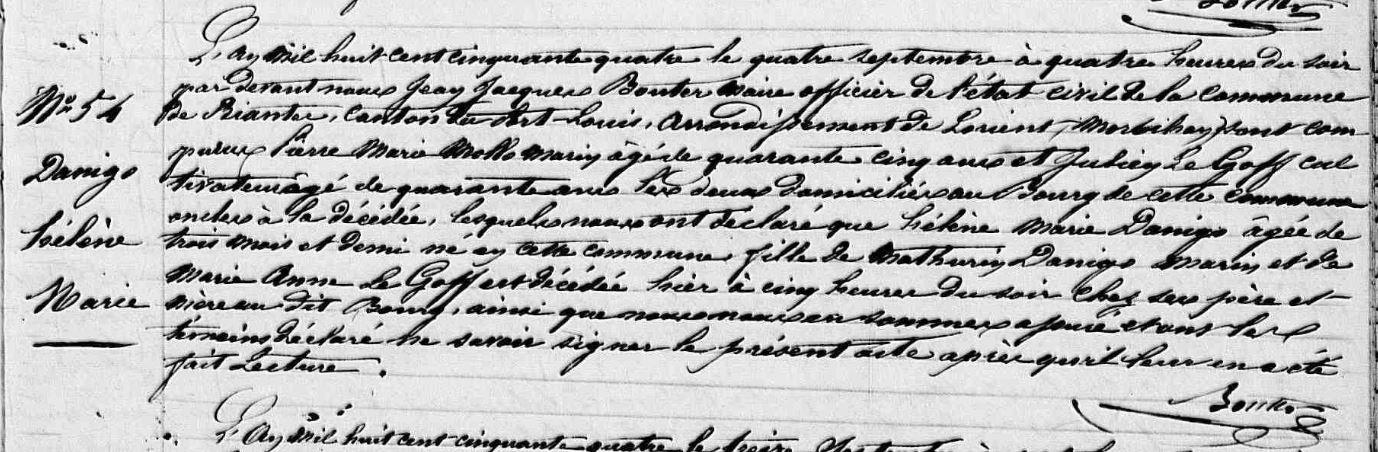 N° 54
Danigo
hélène
Marie
L'an mil huit cent cinquante quatre le quatre septembre à quatre heures du soir
par devant nous Jean Jacques Bouter Maire officier de l'état civil de la commune
De Riantec, canton du Port-Louis, arrondissement de Lorient, (Morbihan) sont com
parus Pierre Marie Mollo Marin âgé de quarante cinq ans et Julien Le Goff cul
tivateur âgé de quarante ans les deux domiciliés au Bourg de cette commune
oncles à la décédée, lesquels nous ont déclaré que hélène Marie Danigo âgée de
trois mois et demi né en cette commune, fille de Mathurin Danigo Marin et de
Marie Anne Le Goff est décédée hier à cinq heures du soir chez ses père et
mère au dit Bourg, ainsi que nous nous en sommes assuré et ont les
témoins déclaré ne savoir signer le présent acte après qu'il leur en a été
fait Lecture.
L'An mil huit cent cinquante quatre le